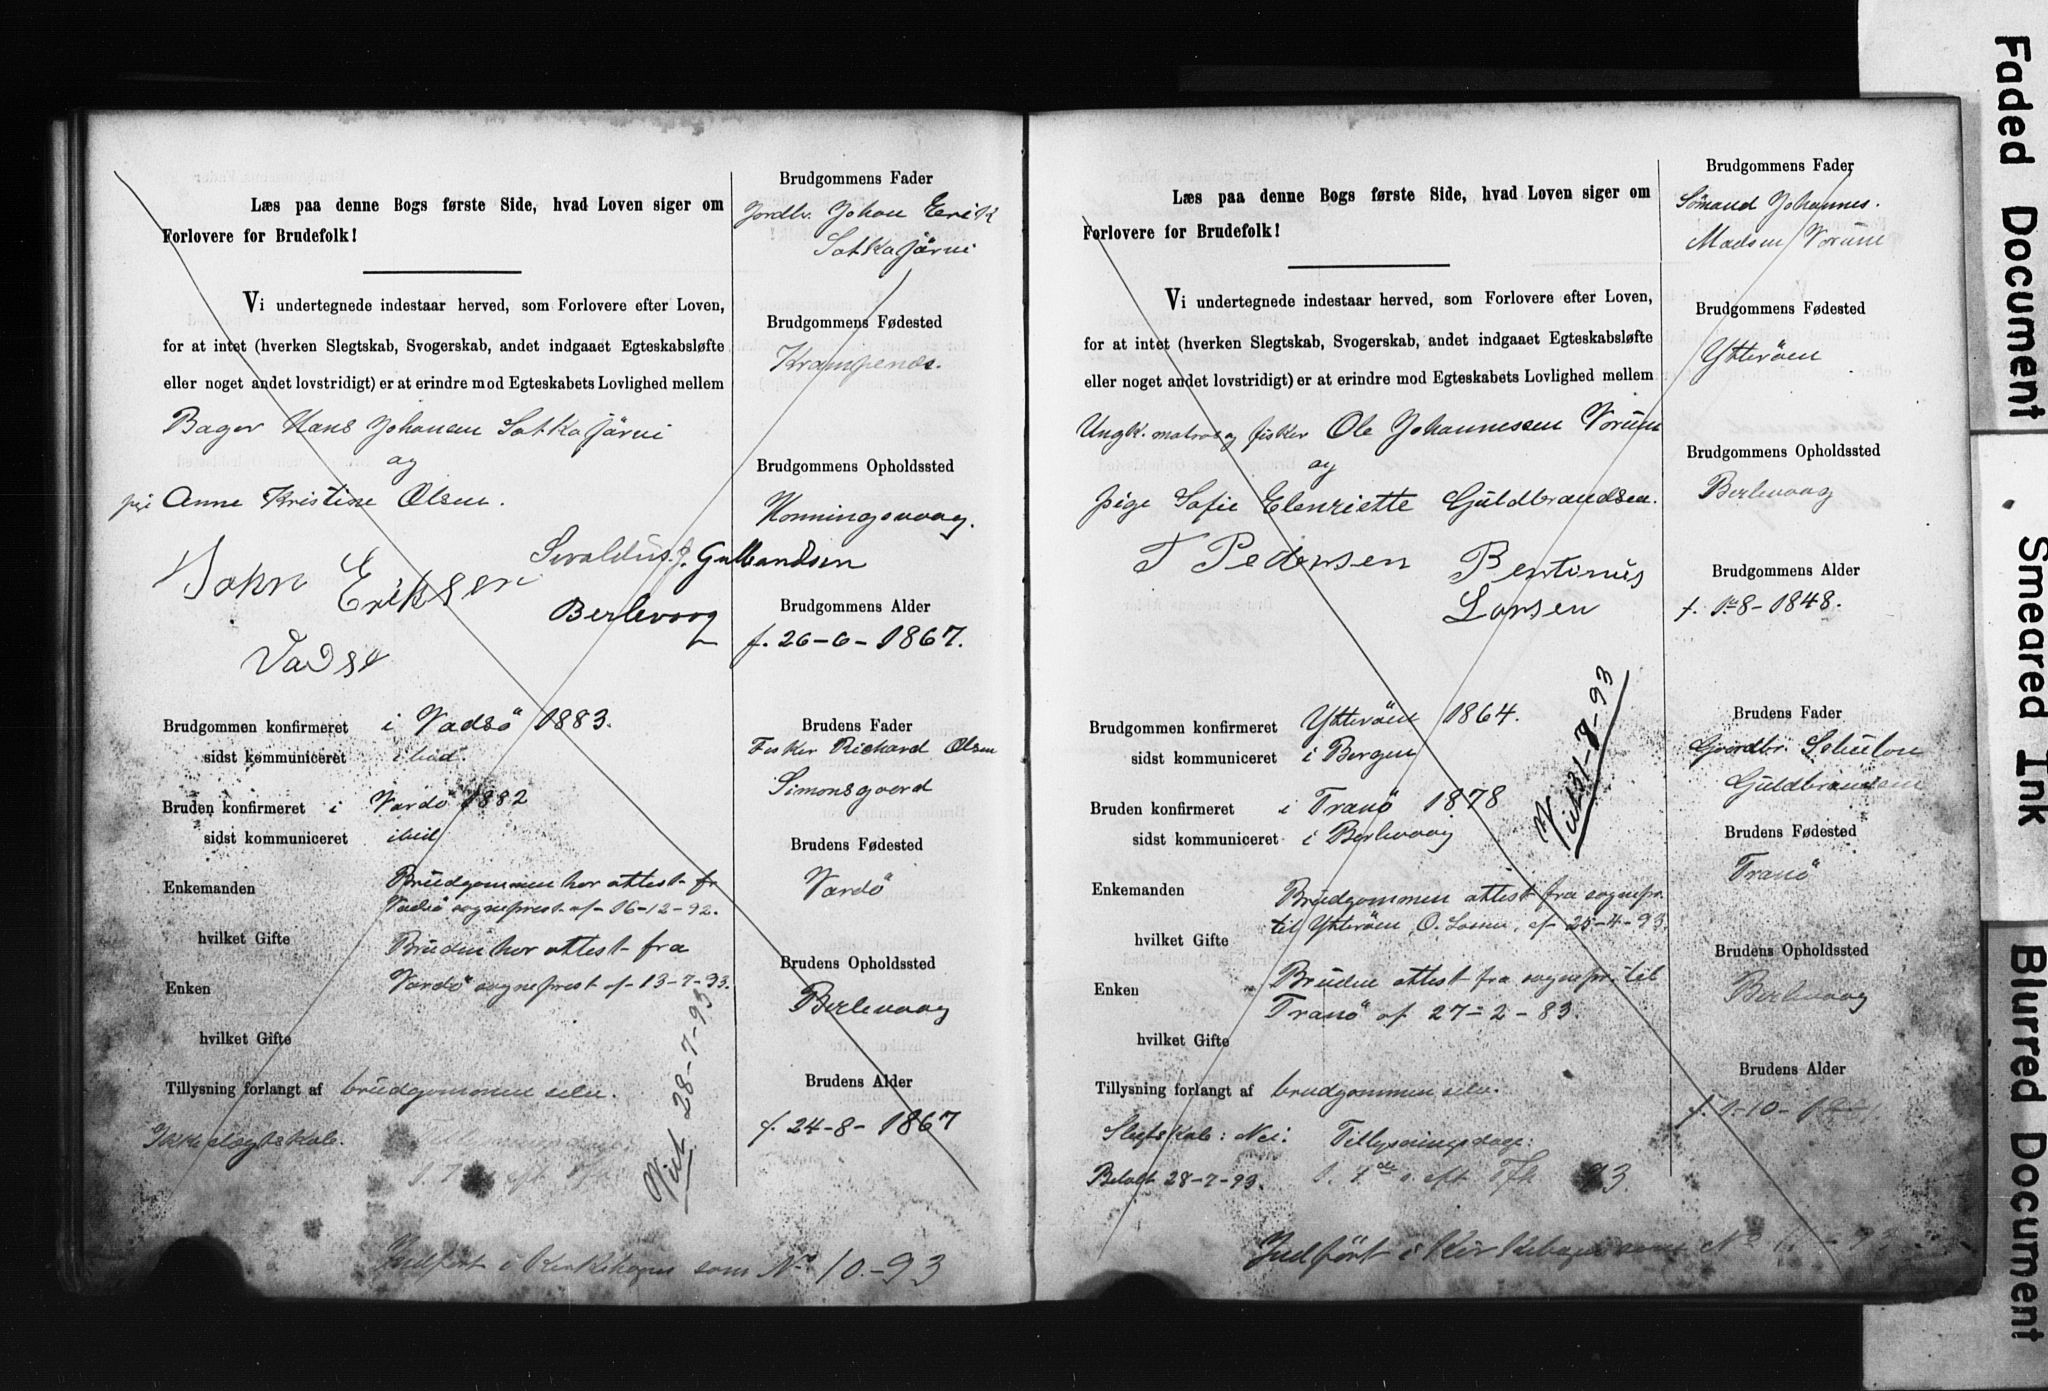 Læs paa denne Bogs første Side, hvad Loven siger om
Forlovere for Brudefolk!
Vi undertegnede indestaar herved, som Forlovere efter Loven,
for at intet (hverken Slegtskab, Svogerskab, andet indgaaet Egteskabsløfte
eller noget andet lovstridigt) er at erindre mod Egteskabets Lovlighed mellem
Bager Hans Johansen Sotkajärvi
og
pige Anne Kristine Olsen.
John Eriksen
Vadsø
Sivaldus J. Gulbandsen
Berlevaag
Brudgommen konfirmeret i Vadsö 1883.
sidst kommuniceret ibid.
Bruden konfirmeret i Vardö 1882
sidst kommuniceret ibid
Enkemanden Brudgommen har attest fr
Vadsö sogneprest af 16-12-92.
hvilket Gifte Bruden har attest fra
Enken Vardö sogneprest af 13-7-93.
hvilket Gifte
Tillysning forlangt af brudgommen selv.
Ikke slegtskab.
Viet 28-7-93
Indført i Kirkebogen som No 10.-93
Brudgommens Fader
Jordbr. Johan Erik
Sotkajärvi
Brudgommens Fødested
Krampenæs.
Brudgommens Opholdssted
Honningsvaag.
Brudgommens Alder
f. 26-6-1867.
Brudens Fader
Fisker Richard Olsen
Simonsgaard
Brudens Fødested
Vardö
Brudens Opholdssted
Berlevaag
Brudens Alder
f. 24-8-1867
Læs paa denne Bogs første Side, hvad Loven siger om
Forlovere for Brudefolk!
Vi undertegnede indestaar herved, som Forlovere efter Loven,
for at intet (hverken Slegtskab, Svogerskab, andet indgaaet Egteskabsløfte
eller noget andet lovstridigt) er at erindre mod Egteskabets Lovlighed mellem
Ungk. matros og fisker Ole Johannessen Vorum
og
pige Sofie Elenriette Guldbrandsen.
T Pedersen Bentinus
Larsen
Brudgommen konfirmeret Ytterøen 1864.
sidst kommuniceret i Bergen
Bruden konfirmeret i Tranö 1878
sidst kommuniceret i Berlevaag
Viet 31-7-93
Enkemanden Brudgommen attest fra sognepr.
til Ytterøen, O. , af 25-4-93.
hvilket Gifte
Enken Bruden attest fra sognepr. til
Tranö af 27-2-83.
hvilket Gifte
Tillysning forlangt af brudgommen selv.
Slegtskab: Nei. Tillysningsdage:
Betalt 28-7-93. 93.
Indført i Kirkebogen som No
Brudgommens Fader
Sömand Johannes
Madsen Vorum
Brudgommens Fødested
Ytterøen
Brudgommens Opholdssted
Berlevaag
Brudgommens Alder
f. 1-8-1848.
Brudens Fader
Gaardbr.
Guldbrandsen
Brudens Fødested
Tranö
Brudens Opholdssted
Berlevaag
Brudens Alder
f. 1-10-
Faded Document
Smeared Ink
Blurred Document